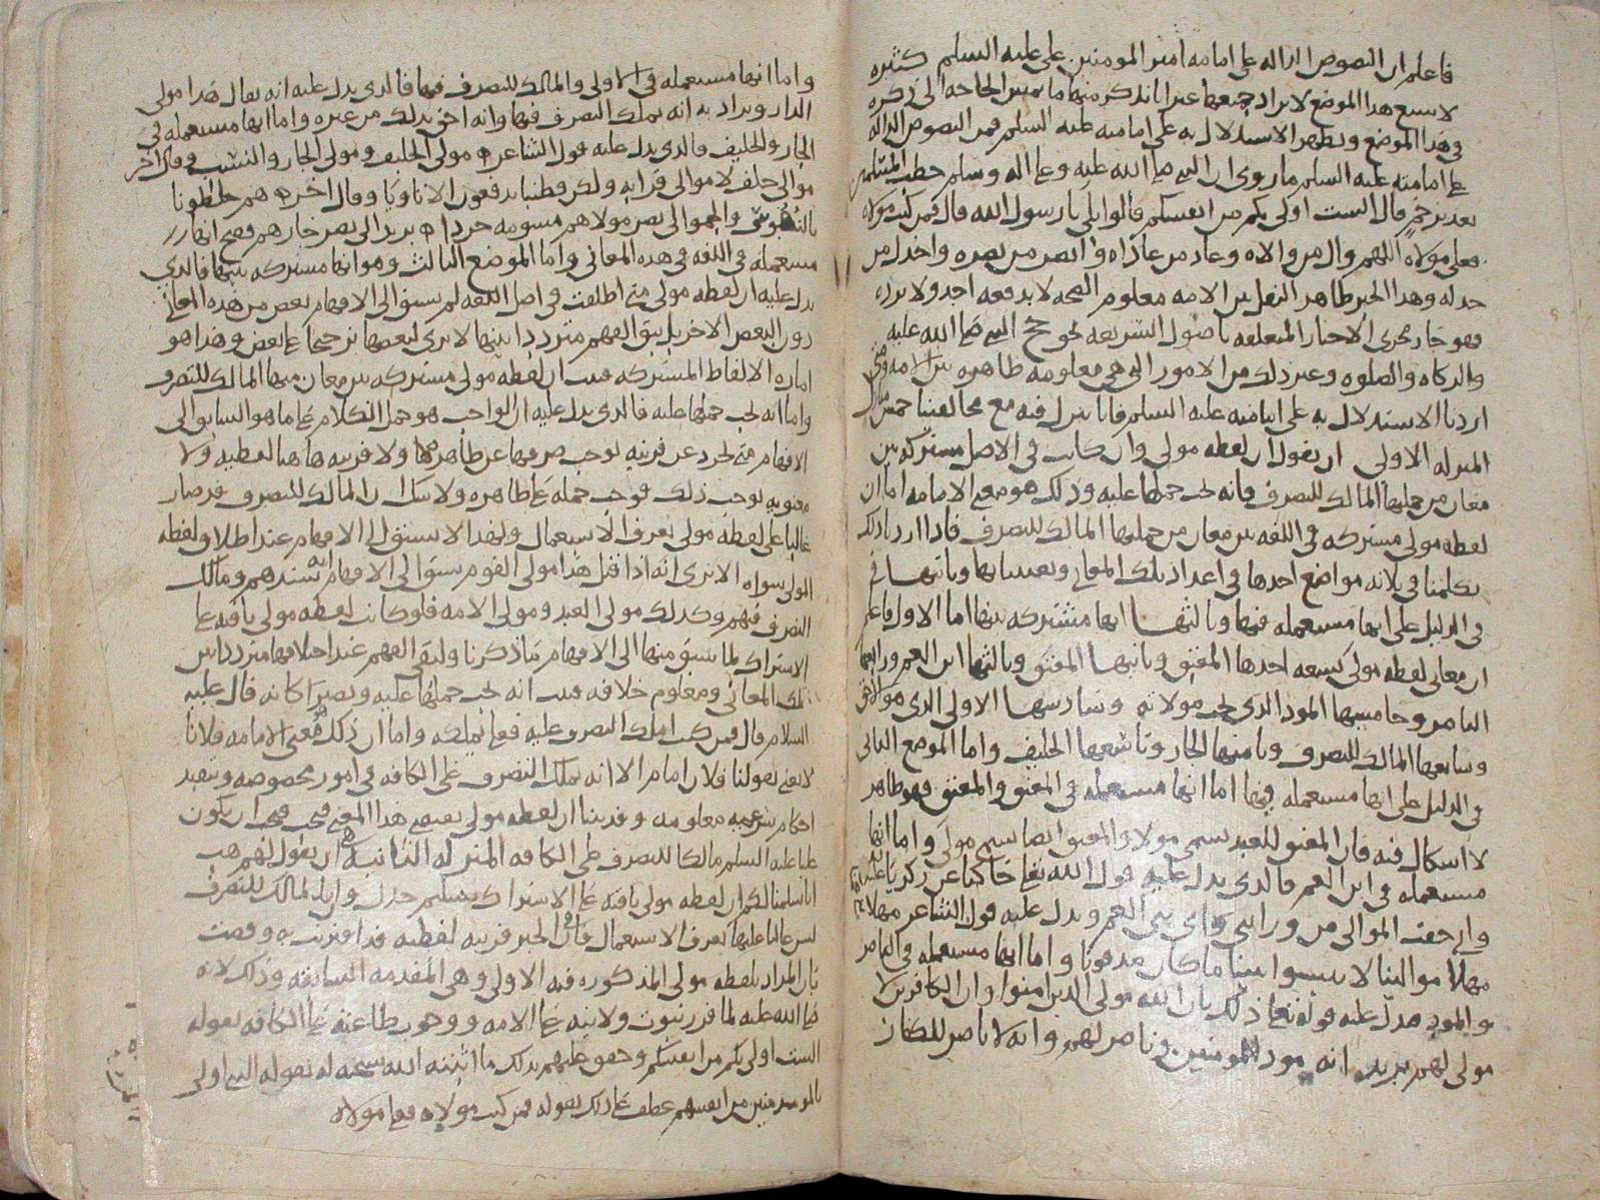 فاعلم ان النصوص الداله على امامه امير المومنين على عليه السلم كثيره
لا يسع هذا الموضع لايراد جميعها غير انا نذكر منها ما تمس الحاجه الى ذكره
في هذا الموضع ويظهر الاستدلال به على امامته عليه السلم فمن النصوص الداله
على امامته عليه السلم ما روى ان النبي صلى الله عليه وعلى اله وسلم خطب المسلمين
بغدير خم قال الست اولى بكم من انفسكم قالوا بلى يا رسول الله قال فمن كنت مولاه
فعلي مولاه اللهم وال من والاه وعاد من عاداه وانصر من نصره واخذل من
خذله وهذا الخبر ظاهر النقل بين الامه معلوم الصحه لا يدفعه احد ولا يرده
فهو جار مجرى الاخبار المتعلقه باصول الشريعه نحو حج النبي صلى الله عليه
والزكاه والصلوه وغير ذلك من الامور التي هي معلومه ظاهره بين الامه ومتى
اردنا الاستدلال به على امامته عليه السلم فانا ننزل فيه مع مخالفينا خمس منازل
المنزله الاولى ان نقول ان لفظه مولى وان كانت في الاصل مشتركه بين
معان من جملتها المالك للتصرف فانه يجب حملها عليه وذلك هو معنى الامامه اما ان
لفظه مولى مشتركه في اللغه بين معان من جملتها المالك للتصرف فاذا اردنا ذلك
تكلمنا في ثلاثه مواضع احدها في اعداد تلك المعاني وتعيينها وثانيها في
في الدليل على انها مستعمله فيها وثالثها انها مشتركه بينها اما الاول فاعلم
ان معاني لفظه مولى تسعه احدها المعتق وثانيها المعتق وثالثها ابن العم ورابعها
الناصر وخامسها المود الذي تجب مولاته وسادسها الاولى الذي هو الاحق
وسابعها المالك للتصرف وثامنها الجار وتاسعها الحليف واما الموضع الثاني
في الدليل على انها مستعمله فيها اما انها مستعمله في المعتق والمعتق فهو ظاهر
لا اشكال فيه فان المعتق للعبد يسمى مولاه والمعتق ايضا يسمى مولى واما انها
مستعمله في ابن العم فالذي يدل عليه قول الله تعالى حاكيا عن زكريا عليه
واني خفت الموالي من وراءي واي بني العم ويدل عليه قول الشاعر مهلا
مهلا موالينا لا تنبشوا بيننا ما كان مدفونا واما انها مستعمله في الناصر
والمود فيدل عليه قوله تعالى ذلك بان الله مولى الذين امنوا وان الكافرين لا
مولى لهم يريد انه مود للمومنين وناصر لهم وانه لا ناصر للكفار
واما انها مستعمله في الاولى والمالك للتصرف فيها فالذي يدل عليه انه يقال هذا مولى
الدار ويراد به انه يملك التصرف فيها وانه احق بذلك من غيره واما انها مستعمله في
الجار والحليف فالذي يدل عليه قول الشاعر مولى الحليف ومولى الجار والنسب وقال اخر
موالى حلف لا موالى قرابه ولكن قطينا يدفعون الاتاويا وقال اخر هم خلطونا
بالنفوس والجموا الى نصر مولاهم مسومه جردا يريد الى نصر جارهم فصح انها
مستعمله في اللغه في هذه المعاني واما الموضع الثالث وهو انها مشتركه بينها فالذي
يدل عليه ان لفظه مولى متى اطلقت في اصل اللغه لم يسبق الى الافهام بعض من هذه المعاني
دون البعض الاخر بل يبقى الفهم مترددا بينها لا يرى لبعضها ترجيحا على بعض وهذا هو
اماره الالفاظ المشتركه فثبت ان لفظه مولى مشتركه بين معان منها المالك للتصرف
واما انه يجب حملها عليه فالذي يدل عليه ان الواجب هو حمل الكلام على ما هو السابق الى
الافهام متى تجرد عن قرينه توجب صرفها عن ظاهرها ولا قرينه هاهنا لفظيه ولا
معنويه توجب ذلك فوجب حمله على ظاهره ولا شك ان المالك للتصرف قد صار
غالبا على لفظه مولى بعرف الاستعمال ولهذا الا يسبق الى الافهام عند اطلاق لفظه
المولى سواه الا ترى انه اذا قيل هذا مولى القوم سبق الى الافهام انه سيدهم ومالك
التصرف فيهم وكذلك مولى العبد ومولى الامه فلو كانت لفظه مولى باقيه على
الاشتراك لما سبق منها الى الافهام ما ذكرنا ولبقي الفهم عند اطلاقها مترددا بين
تلك المعاني ومعلوم خلافه فثبت انه يجب حملها عليه ويصير كانه قال عليه
السلام قال فمن كنت املك التصرف عليه فعلي يملكه واما ان ذلك هو معنى الامامه فلانا
لا نعني بقولنا فلان امام الا انه يملك التصرف على الكافه في امور مخصوصه وتنفيذ
احكام شرعيه معلومه وقد بينا ان لفظه مولى تفيد هذا المعنى فيجب ان يكون
علي عليه السلم مالكا للتصرف على الكافه المنزله الثانيه هي ان نقول لهم هب
انا سلمنا لكم ان لفظه مولى باقيه على الاشتراك وان المالك للتصرف
ليس غالبا عليها بعرف الاستعمال فان في الخبر قرينه لفظيه قد اقترنت به وقضت
بان المراد بلفظه مولى المذكوره فيه الاولى وهي المقدمه السابقه وذلك لانه
صلى الله عليه لما قرر ثبوت ولايته على الامه ووجوب طاعته على الكافه بقوله
الست اولى بكم من انفسكم وحقق عليهم بذلك ما اثبته الله سبحنه له بقوله النبي اولى
بالمومنين من انفسهم عطف على ذلك بقوله فمن كنت مولاه فعلي مولاه